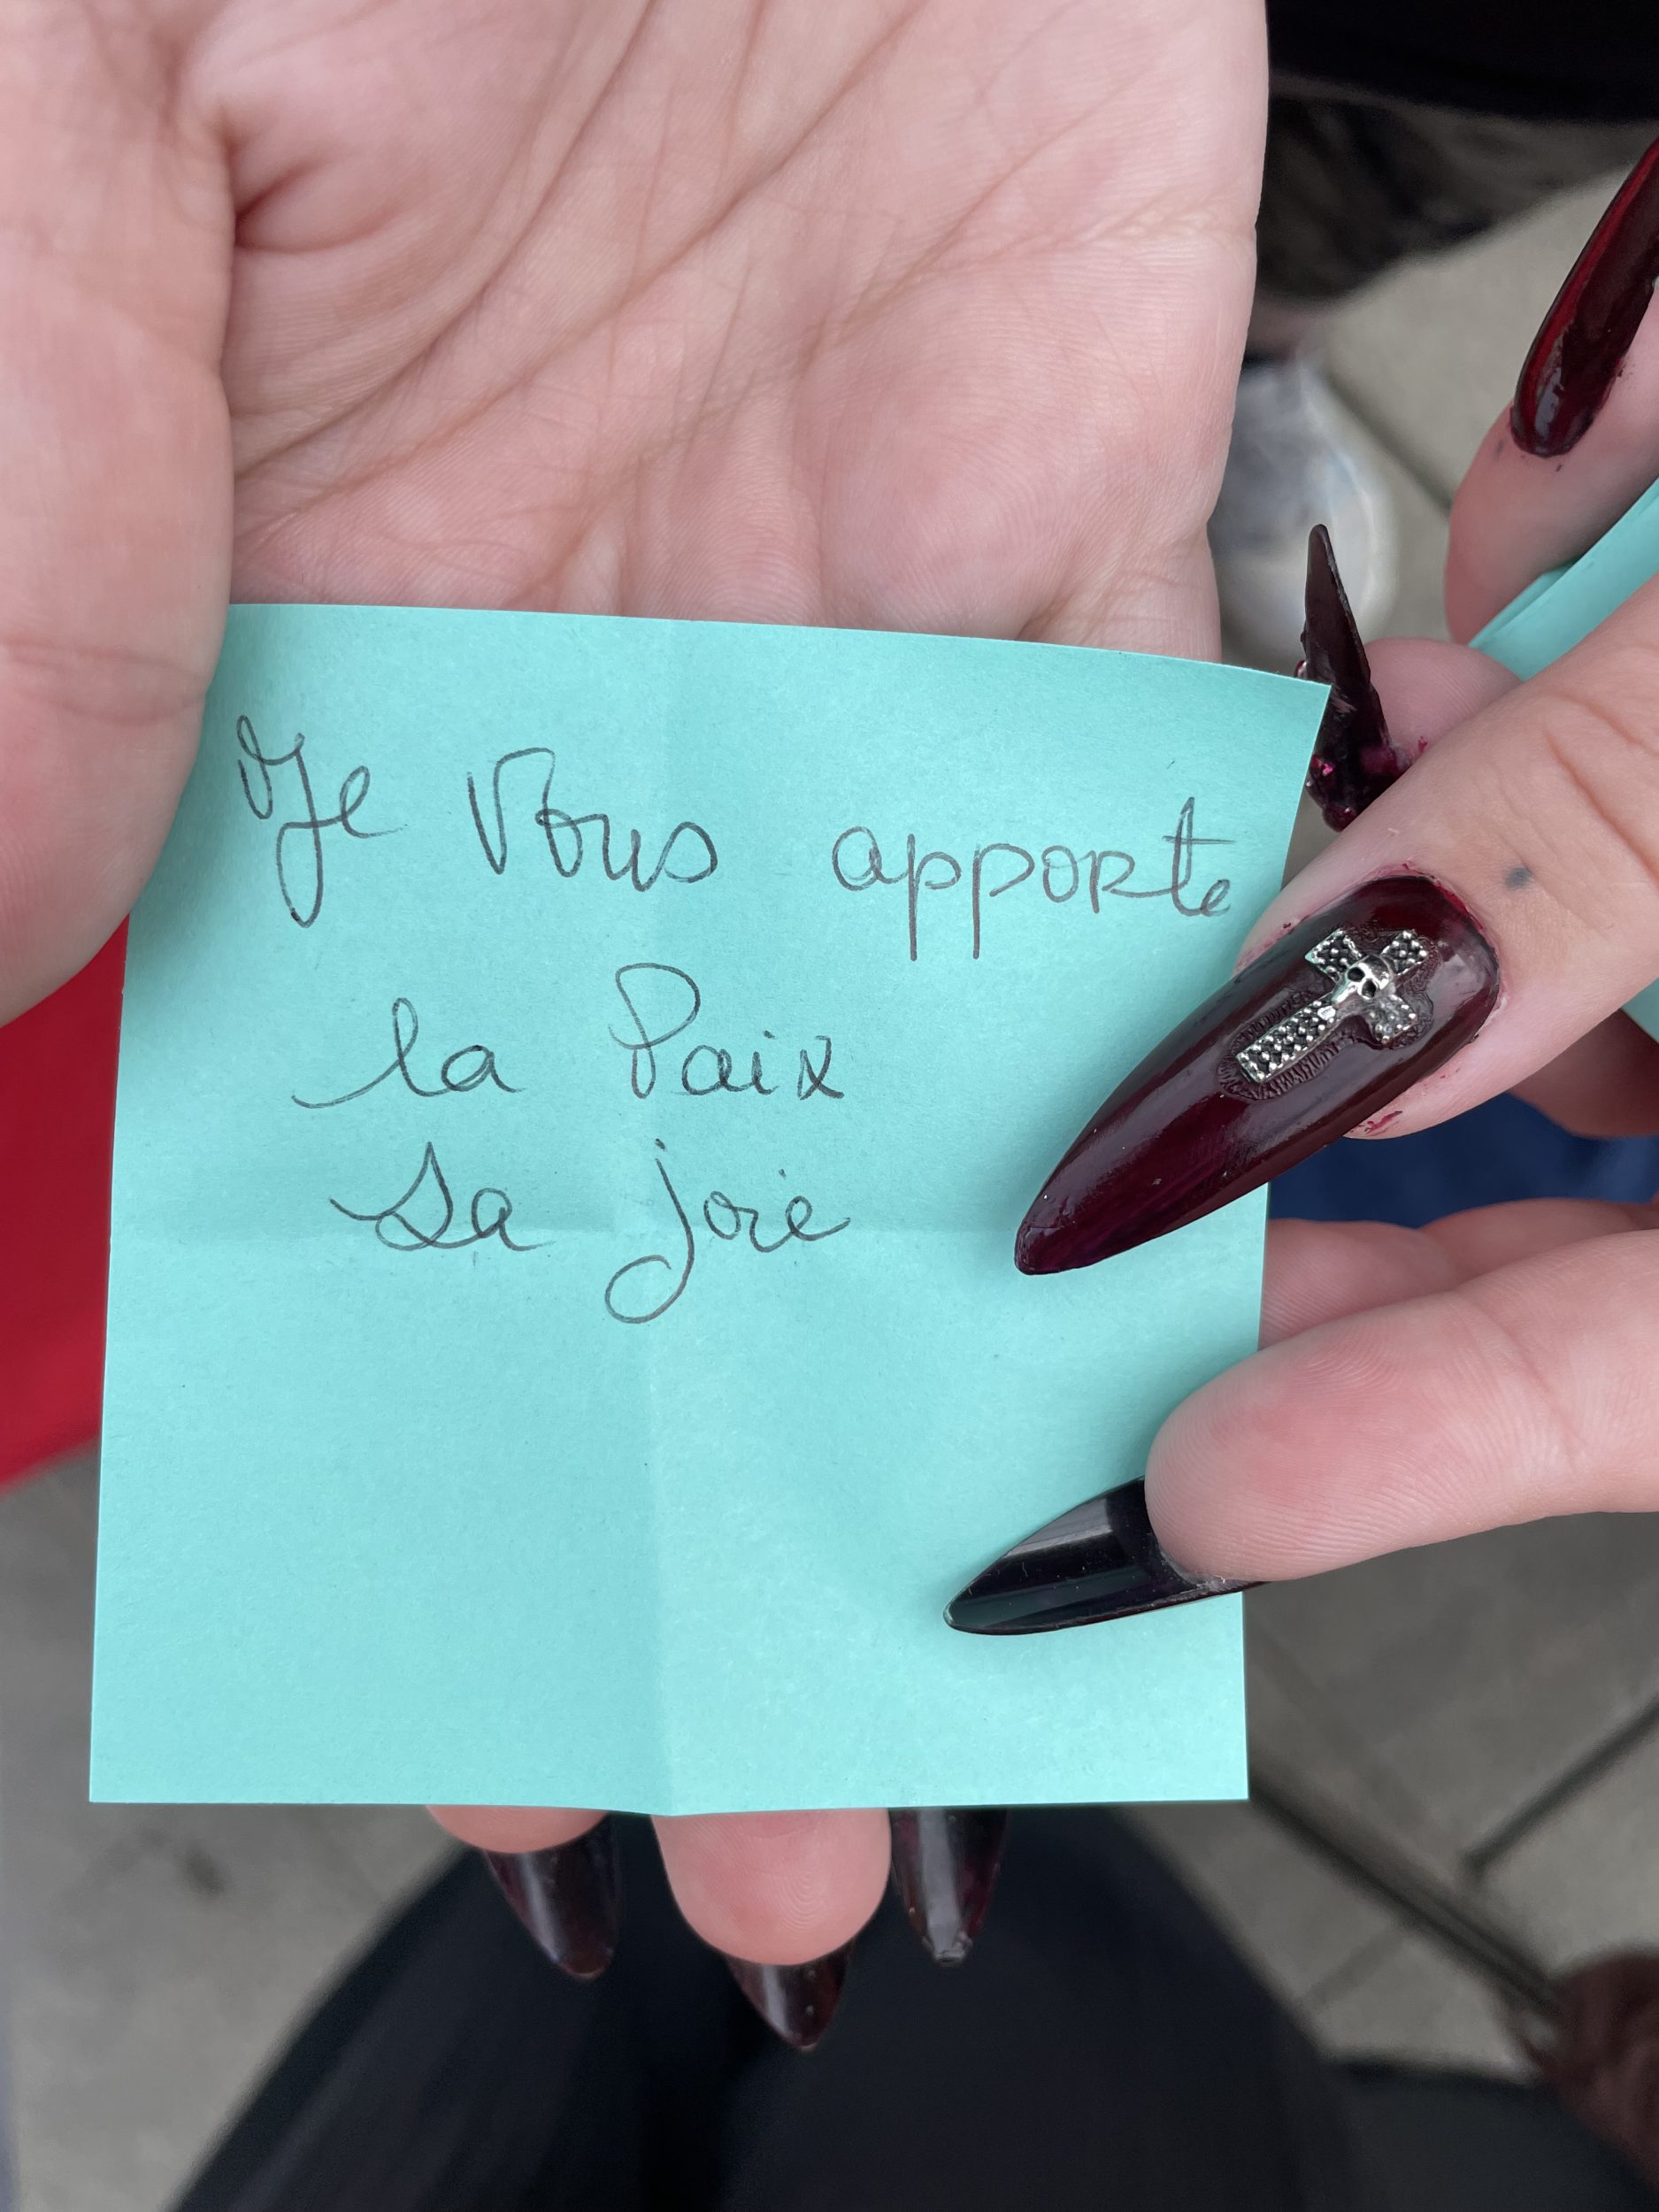 Je Vous apporte
la Paix
Sa joie